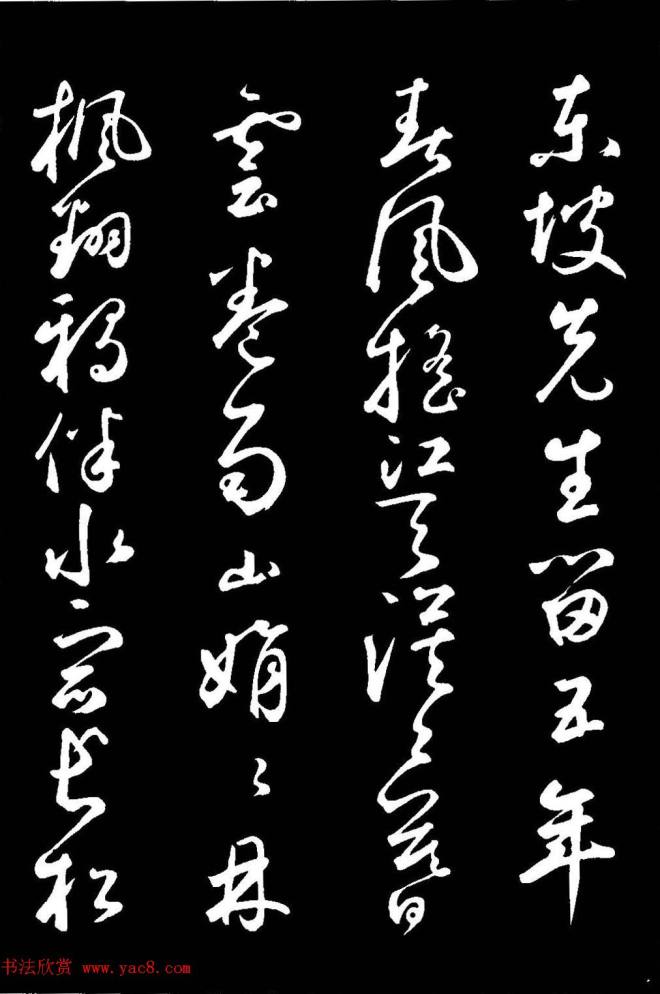 東坡先生留五年
春風搖江天漠々暮
雲卷雨山娟々丹
楓翻鴉伴水宿長松
书法欣赏 www.yac8.com